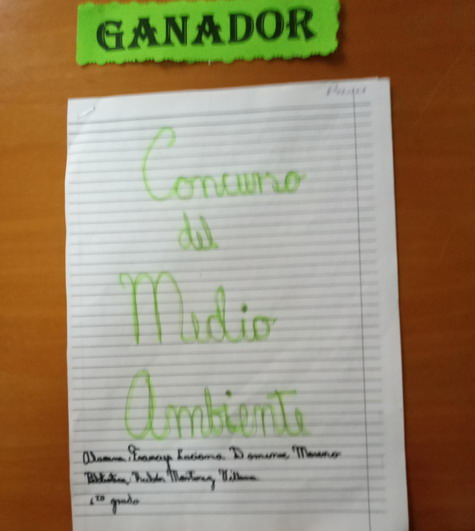 GANADOR
Concurso
del
Medio
Ambiente
Alumna: Luciana Moreno
Biblioteca
6to grado